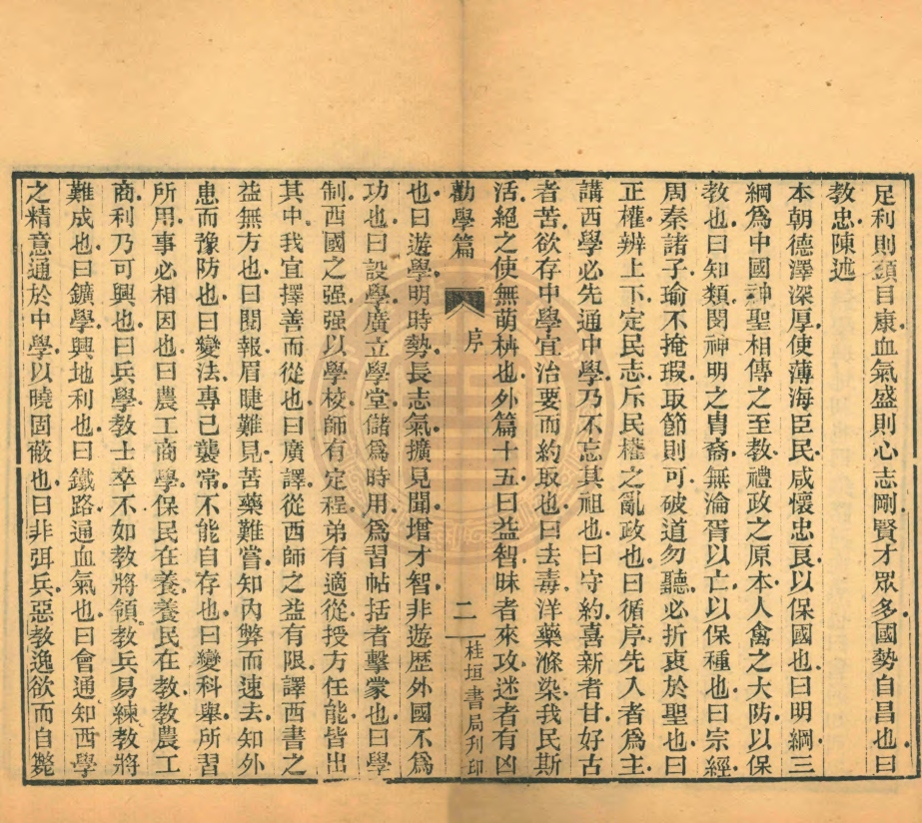 足利則頭目康血氣盛則心志剛賢才眾多國勢自昌也曰
教忠陳述
本朝德澤深厚使薄海臣民咸懷忠良以保國也曰明綱三
綱爲中國神聖相傳之至教禮政之原本人禽之大防以保
教也曰知類閔神明之冑裔無淪胥以亡以保種也曰宗經
周秦諸子瑜不掩瑕取節則可破道勿聽必折衷於聖也曰
正權辨上下定民志斥民權之亂政也曰循序先入者爲主
講西學必先通中學乃不忘其祖也曰守約喜新者甘好古
者苦欲存中學宜治要而約取也曰去毒洋藥滌染我民斯
活絕之使無萌枿也外篇十五曰益智昧者來攻迷者有凶
勸學篇 序 二 桂垣書局刋印
也曰遊學明時勢長志氣擴見聞增才智非遊歷外國不爲
功也曰設學廣立學堂儲爲時用爲習帖括者擊蒙也曰學
制西國之强强以學校師有定程弟有適從授方任能皆出
其中我宜擇善而從也曰廣譯從西師之益有限譯西書之
益無方也曰閱報眉睫難見苦藥難嘗知內弊而速去知外
患而豫防也曰變法專己襲常不能自存也曰變科舉所習
所用事必相因也曰農工商學保民在養養民在教教農工
商利乃可興也曰兵學教士卒不如教將領教兵易練教將
難成也曰鑛學興地利也曰鐵路通血氣也曰會通知西學
之精意通於中學以曉固蔽也曰非弭兵惡教逸欲而自斃